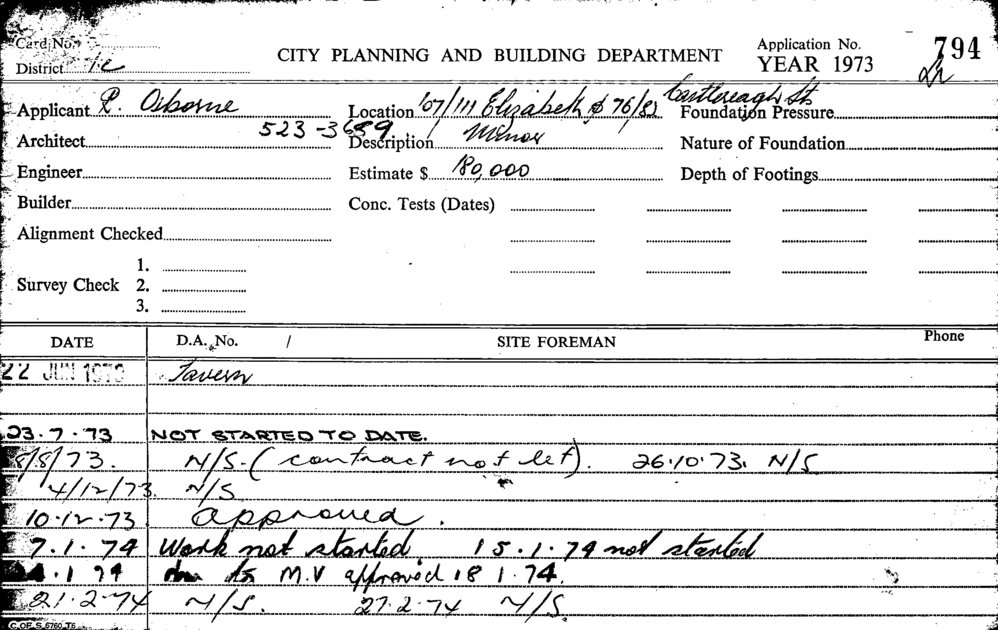 Card No.
District 1c CITY PLANNING AND BUILDING DEPARTMENT Application No. YEAR 1973 794
Applicant R. Osborne Location 107/111 Elizabeth & 76/82 Castlereagh St. Foundation Pressure
Architect 523-3689 Description Minor Nature of Foundation
Engineer Estimate $ 180,000 Depth of Footings
Builder Conc. Tests (Dates)
Alignment Checked
1.
Survey Check 2.
3.
DATE D.A. No. / SITE FOREMAN Phone
22 JUN 1973 Tavern
23.7.73 NOT STARTED TO DATE.
8/8/73. N/S. (contract not let). 26.10.73. N/S
4/12/73. N/S
10.12.73 approved.
7.1.74 Work not started 15.1.74 not started
.1 74 M.V approved 18 1.74.
21.2.74 N/S. 27.2.74 N/S.
C. OF S. 6760 T6